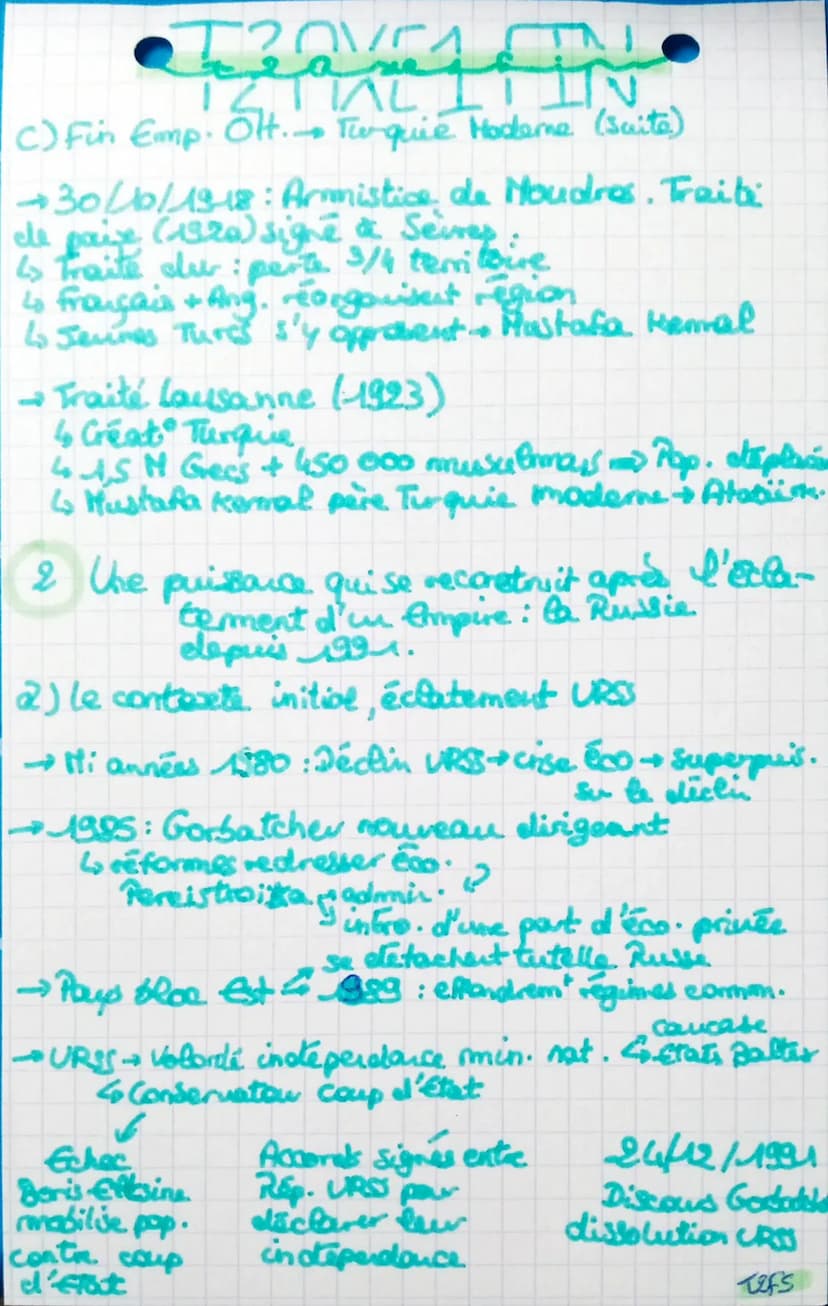 C) Fin Emp. Ott. → Turquie Moderne (suite)
→ 30/10/1918 : Armistice de Moudros. Traité
de paix (1920) signé à Sèvres.
↳ Traité dur : perte 3/4 territoire
↳ Français + Ang. réorganisent région
↳ Jeunes Turcs s'y opposent → Mustafa Kemal
→ Traité Lausanne (1923)
↳ Créat° Turquie
↳ 1,5 M Grecs + 450 000 musulmans ⇒ Pop. déplacées
↳ Mustafa Kemal père Turquie moderne →
2 Une puissance qui se reconstruit après l'écla-
tement d'un Empire : la Russie
depuis 1991.
a) Le contexte initial, éclatement URSS
→ Mi années 1980 : Déclin URSS → crise Éco → Superpuis.
sur le déclin
→ 1985 : Gorbatchev nouveau dirigeant
↳ réformes redresser éco.
admin.
intro. d'une part d'éco. privée
se détachent tutelle Russe
→ Pays bloc Est 1989 : effondrem^t régimes commun.
caucase
→ URSS → Volonté indépendance min. nat. ↳ États Baltes
↳ Conservateur coup d'État
Echec
Boris Eltsine
mobilise pop.
contre coup
d'État
Accords signés entre
Rép. URSS pour
déclarer leur
indépendance
24/12/1991
Discous
dissolution URSS
T2F5